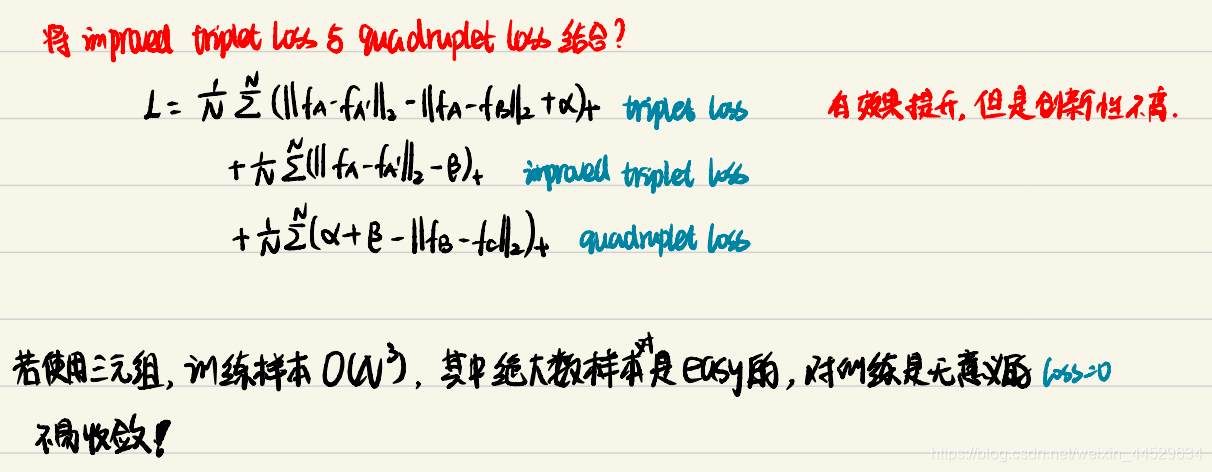 将 improved triplet loss 与 quadruplet loss 结合？
L = 1/N Σ^N (||f_A - f_A'||_2 - ||f_A - f_B||_2 + α)_+ triplet loss 有效果提升, 但是创新性不高.
+ 1/N Σ^N (||f_A - f_A'||_2 - β)_+ improved triplet loss
+ 1/N Σ^N (α + β - ||f_B - f_C||_2)_+ quadruplet loss
若使用三元组, 训练样本 O(N³), 其中绝大数样本对是 easy的, 对训练是无意义的 loss=0
不易收敛！
https://blog.csdn.net/weixin_44529634